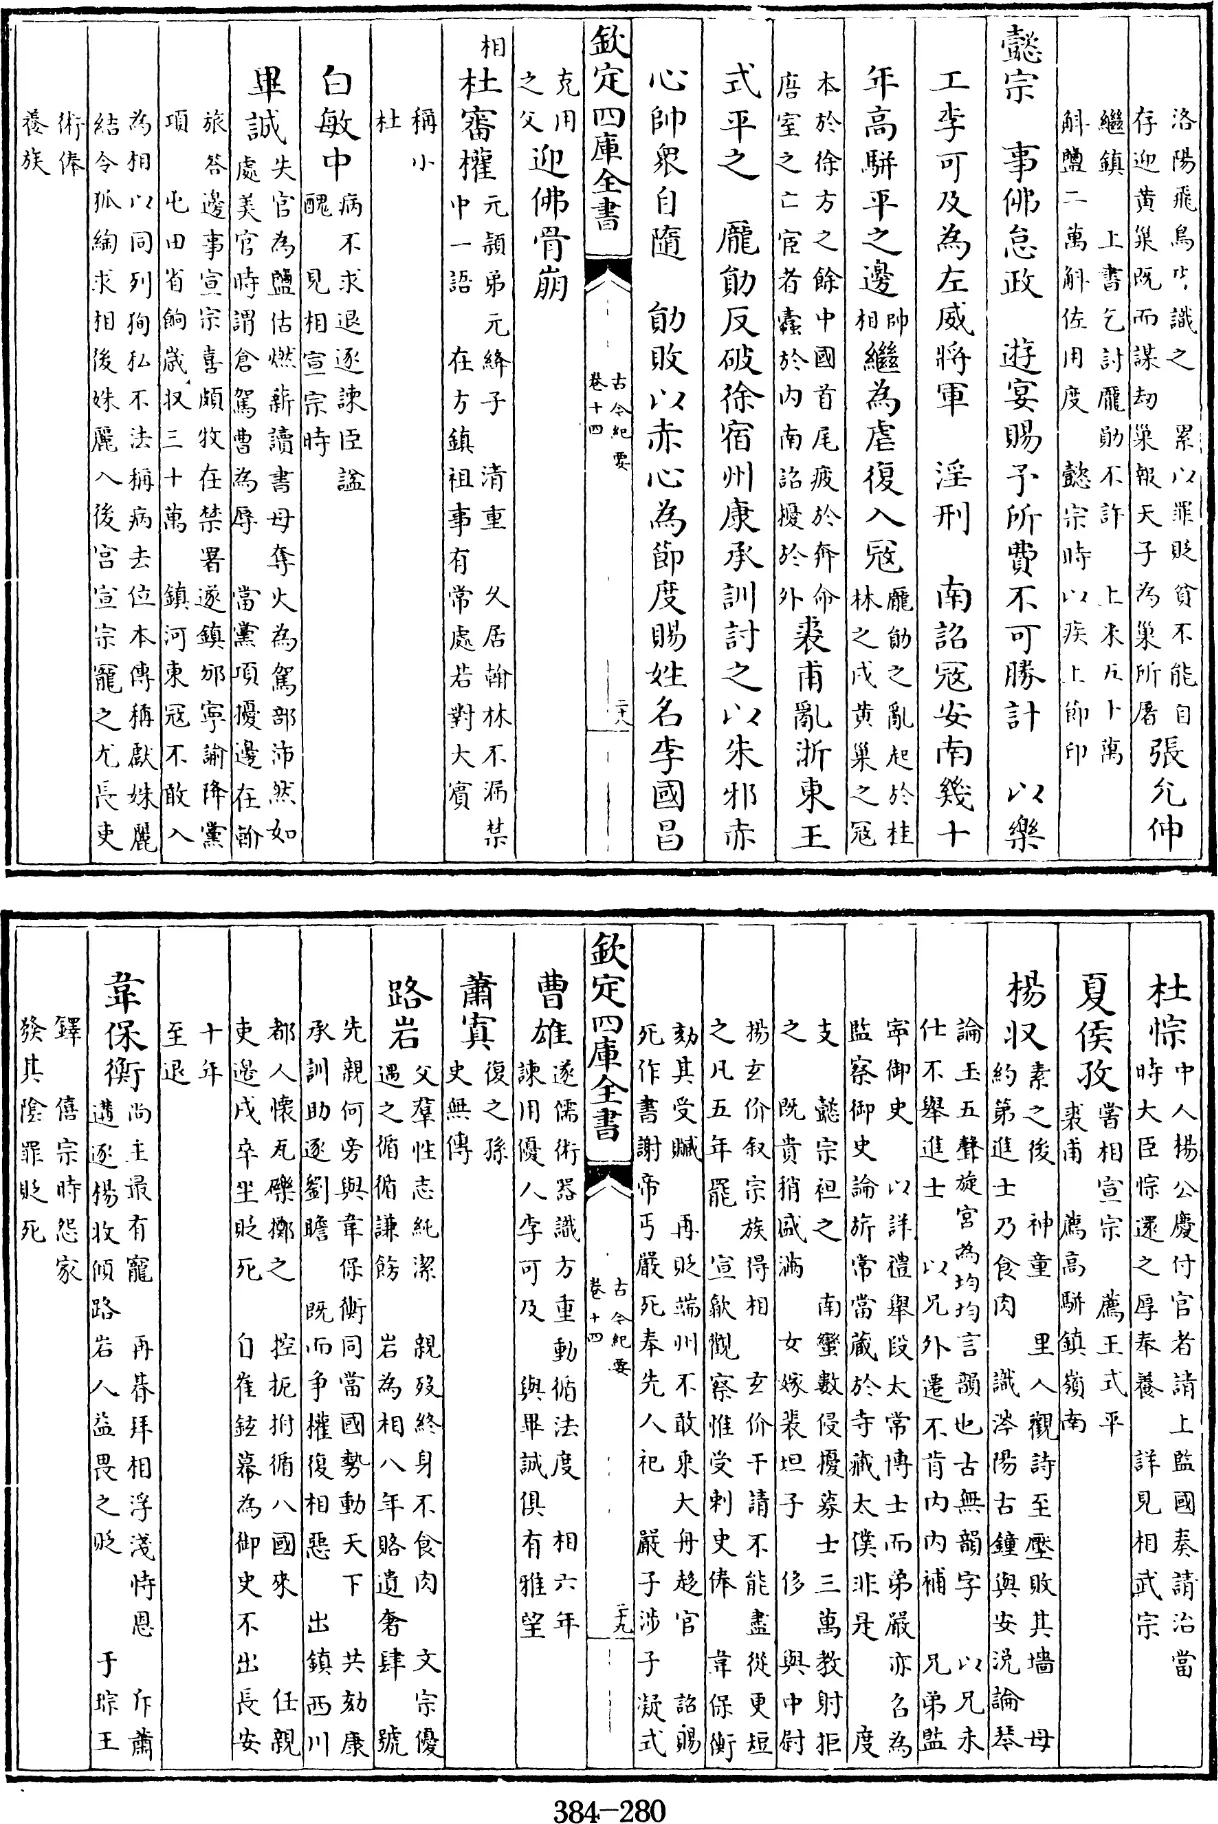 洛陽飛鳥皆識之　累以罪貶貧不能自
存迎黄巢既而謀刼巢報天子為巢所屠
張允伸
繼鎮　上書乞討龎勛不許　上米五十萬
斛鹽二萬斛佐用度　懿宗時以疾上節印
懿宗　事佛怠政　遊宴賜予所費不可勝計　以樂
工李可及為左威將軍　淫刑　南詔冦安南幾十
年高駢平之邊帥相繼為虐復入冦
龎勛之亂起於桂
林之戍黄巢之冦
本於徐方之餘中國首尾疲於奔命
唐室之亡宦者蠧於内南詔擾於外
裘甫亂浙東王
式平之　龎勛反破徐宿州康承訓討之以朱邪赤
心帥衆自隨　勛敗以赤心為節度賜姓名李國昌
欽定四庫全書
古今紀要
卷十四
二十八
克用
之父
迎佛骨崩
相
杜審權
元頴弟元絳子　清重　久居翰林不漏禁
中一語　在方鎮祖事有常處若對大賓
稱小
杜
白敏中
病不求退逐諫臣謚
醜　見相宣宗時
畢誠
失官為鹽估燃薪讀書母奪火為駕部沛然如
處美官時謂倉駕曹為辱　當黨項擾邊在翰
旅答邊事宣宗喜頗牧在禁署遂鎮邠寧諭降黨
項　屯田省餉歳収三十萬　鎮河東冦不敢入
為相以同列狥私不法稱病去位本傳稱獻姝麗
結令狐綯求相後姝麗入後宫宣宗寵之尤長吏
術俸
養族
杜悰
中人楊公慶付官者請上監國奏請治當
時大臣悰還之厚奉養　詳見相武宗
夏侯孜
嘗相宣宗　薦王式平
裘甫　薦高駢鎮嶺南
楊収
素之後　神童　里人觀詩至壓敗其墻　母
約第進士乃食肉　識涔陽古鐘與安涚論琴
論五聲旋宫為均均言韻也古無韻字　以兄未
仕不舉進士　以兄外遷不肯内内補　兄弟監
寧御史　以詳禮舉段太常博士而弟嚴亦召為
監察御史論旂常當藏於寺藏太僕非是　度
支　懿宗袒之　南蠻數侵擾募士三萬教射拒
之　既貴稍盛滿　女嫁裴坦子　侈　與中尉
楊玄价叙宗族得相　玄价干請不能盡從更短
之凡五年罷　宣歙觀察惟受刺史俸　韋保衡
劾其受贓　再貶端州不敢乘大舟趍官　詔賜
死作書謝帝丐嚴死奉先人祀　嚴子涉子凝式
欽定四庫全書
古今紀要
卷十四
二十九
曹雄
遂儒術器識方重動循法度　相六年
諫用優人李可及　與畢誠俱有雅望
蕭寘
復之孫
史無傳
路岩
父羣性志純潔　親歿終身不食肉　文宗優
遇之循循謙飭　岩為相八年賂遺奢肆　號
先親何旁與韋保衡同當國勢動天下　共劾康
承訓助逐劉瞻　既而争權復相惡　出鎮西川
都人懷瓦礫擲之　控扼拊循八國來　任親
吏邊戍卒坐貶死　自崔鉉幕為御史不出長安
十年
至退
韋保衡
尚主最有寵　再朞拜相浮淺恃恩　斥蕭
遘逐楊收傾路岩人益畏之貶　于琮王
鐸　僖宗時怨家
發其陰罪貶死
384-280